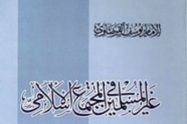 للإمام يوسف القرضاوي
غير المسلمين في المجتمع الإسلامي